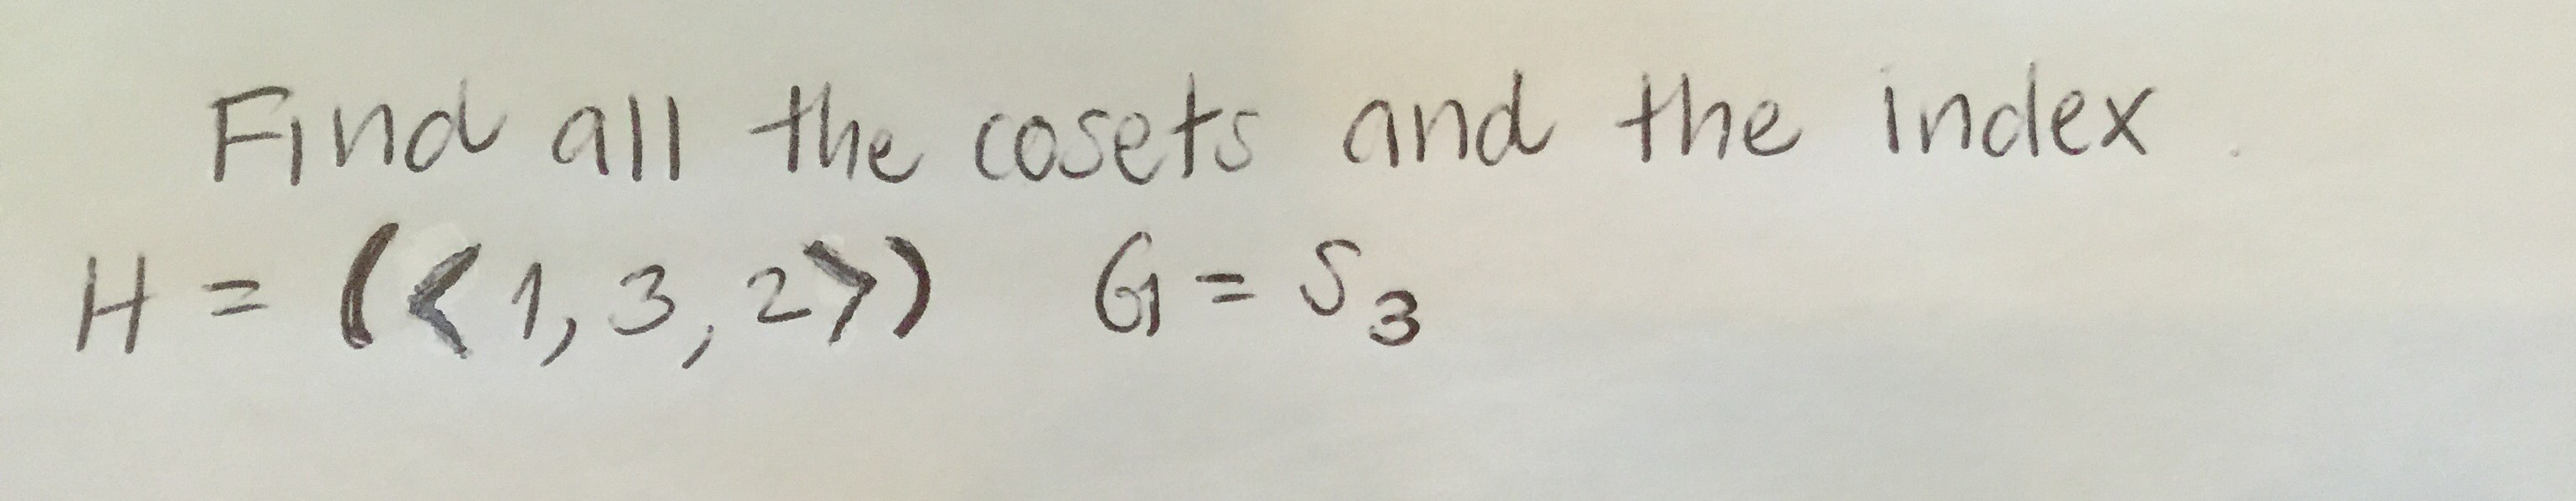 Find all the cosets and the index.
H = (<1,3,2>) G = S₃